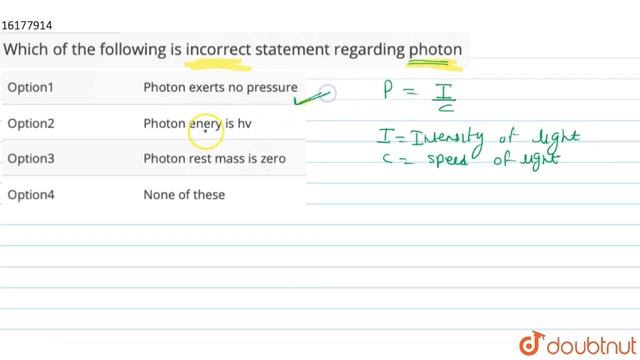 16177914
Which of the following is incorrect statement regarding photon
Option1 Photon exerts no pressure
Option2 Photon enery is hv
Option3 Photon rest mass is zero
Option4 None of these
P = I/c
I = Intensity of light
c = speed of light
doubtnut